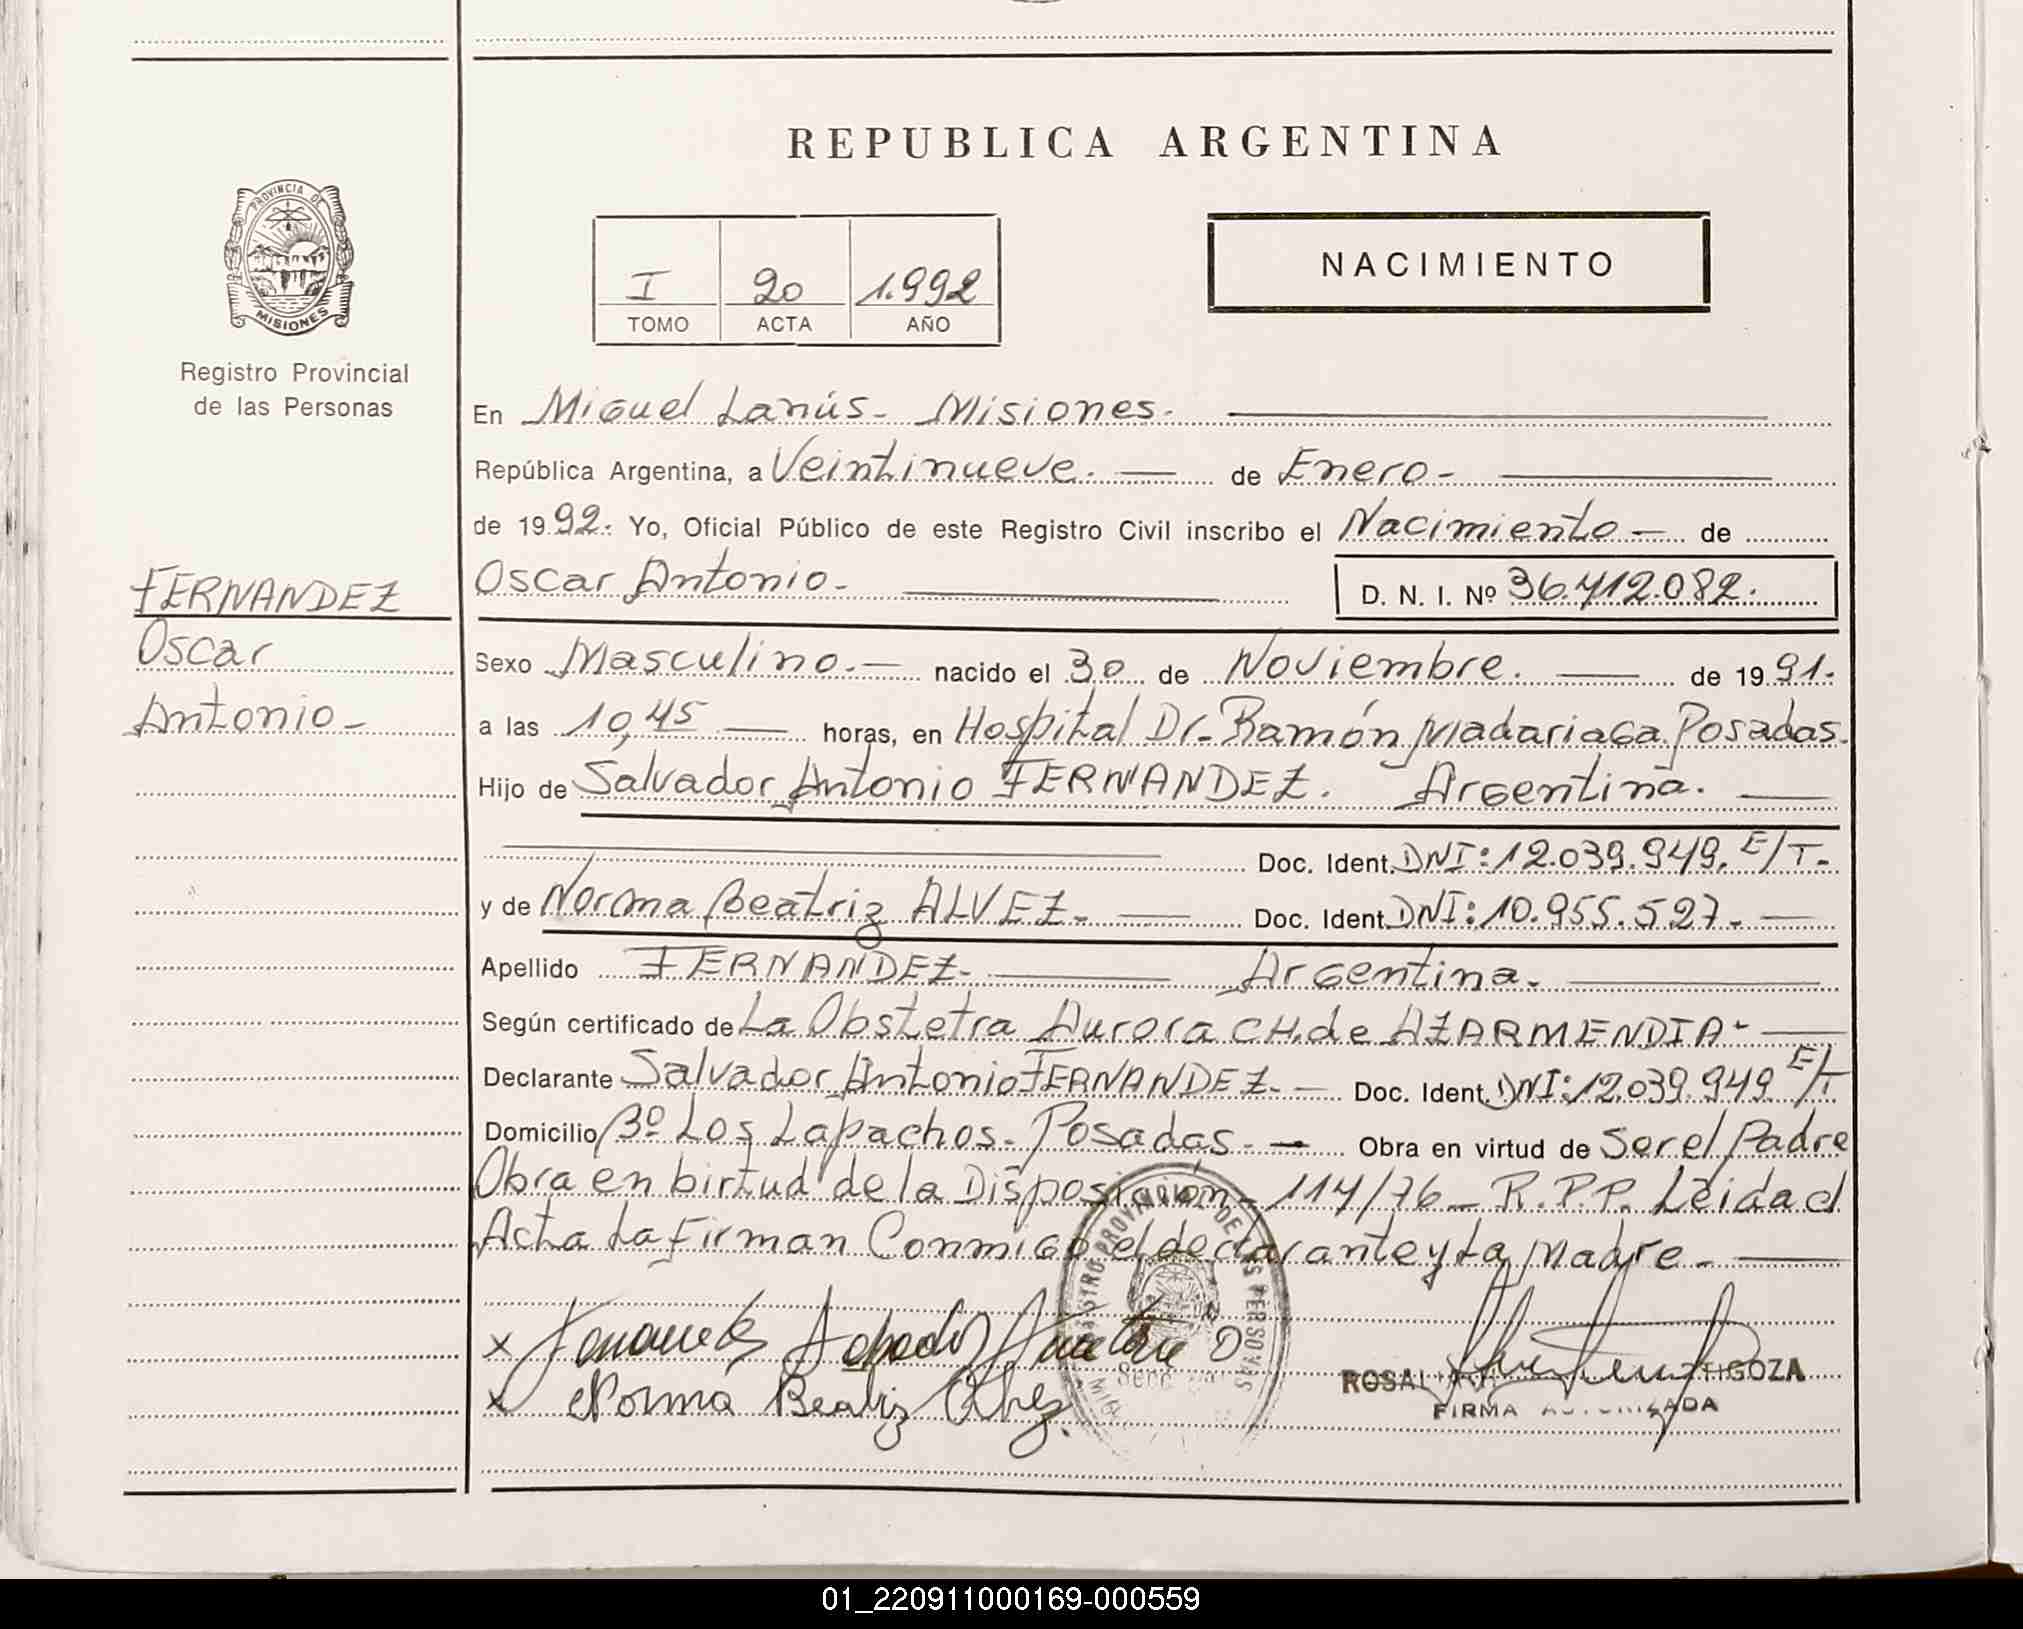 REPUBLICA ARGENTINA
PROVINCIA DE
MISIONES
Registro Provincial
de las Personas
I 20 1.992
TOMO ACTA AÑO
NACIMIENTO
En Miguel Lanús - Misiones.
República Argentina, a Veintinueve. de Enero -
de 1992. Yo, Oficial Público de este Registro Civil inscribo el Nacimiento - de
Oscar Antonio - D. N. I. Nº 36.412.082.
FERNANDEZ
Oscar
Antonio -
Sexo Masculino. - nacido el 30 de Noviembre. de 1991.
a las 10,45 horas, en Hospital Dr. Ramón Madariaga Posadas.
Hijo de Salvador Antonio FERNANDEZ. Argentina.
Doc. Ident. DNI: 12.039.949. E/T.
y de Norma Beatriz ALVEZ - Doc. Ident. DNI: 10.955.527. -
Apellido FERNANDEZ - Argentina. -
Según certificado de La Obstetra Aurora CH. de AZARMENDIA -
Declarante Salvador Antonio FERNANDEZ. - Doc. Ident. DNI: 12.039.949 E/T
Domicilio Bº Los Lapachos - Posadas. - Obra en virtud de Ser el Padre
Obra en birtud de la Disposición - 114/76 - R.P.P. Leida el
Acta La Firman Conmigo el declarante y La Madre. -
x Fernandez Salvador Antonio
x Norma Beatriz Alvez.
REGISTRO PROVINCIAL DE LAS PERSONAS
FIRMA AUTORIZADA
01_220911000169-000559